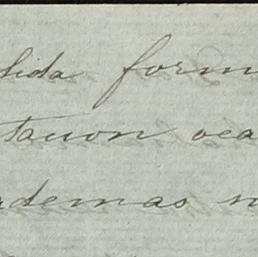 lida form
tacion oca
ademas n